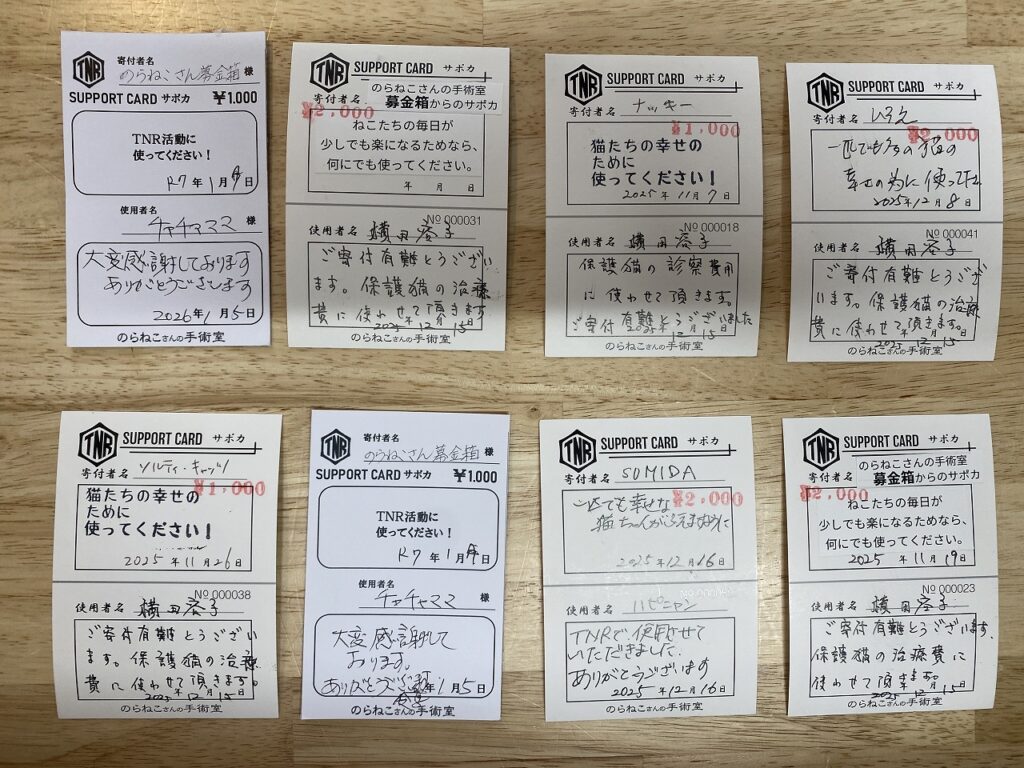 TNR
寄付者名
のらねこさん募金箱 様
SUPPORT CARD サポカ ¥1.000
TNR活動に
使ってください！
R7 年 1 月 日
使用者名
チャチャママ 様
大変感謝しております
ありがとうございます
2026年 1 月 5 日
のらねこさんの手術室
TNR SUPPORT CARD サポカ
のらねこさんの手術室
寄付者名 募金箱からのサポカ
¥2,000
ねこたちの毎日が
少しでも楽になるためなら、
何にでも使ってください。
年 月 日
No 000031
使用者名 横田容子
ご寄付有難とうござい
ます。保護猫の治療
費に使わせて頂きます
2025 12 15
のらねこさんの手術室
TNR SUPPORT CARD サポカ
寄付者名 ナッキー
¥1,000
猫たちの幸せの
ために
使ってください！
2025 年 11 月 7 日
No 000018
使用者名 横田容子
保護猫の診察費用
に使わせて頂きます。
ご寄付有難とうございました
2025 12 15
のらねこさんの手術室
TNR SUPPORT CARD サポカ
寄付者名
¥2,000
一匹でも多くの猫の
幸せの為に使って
2025年12月 8 日
No 000041
使用者名 横田容子
ご寄付有難とうござ
います。保護猫の治療
費に使わせて頂きます。
2025 12 15
のらねこさんの手術室
TNR SUPPORT CARD サポカ
寄付者名 ソルティ・キャッツ
¥1,000
猫たちの幸せの
ために
使ってください！
2025 年 11 月 26 日
No 000038
使用者名 横田容子
ご寄付有難とうござい
ます。保護猫の治療
費に使わせて頂きます。
2025 12 15
のらねこさんの手術室
TNR
寄付者名
のらねこさん募金箱 様
SUPPORT CARD サポカ ¥1.000
TNR活動に
使ってください！
R7 年 1 月 日
使用者名
チャチャママ 様
大変感謝して
おります。
ありがとうござい
年 1 月 5 日
のらねこさんの手術室
TNR SUPPORT CARD サポカ
寄付者名 SUMIDA
¥2,000
一匹でも幸せな
猫ちゃんがふえますように
2025 年 12 月 16 日
使用者名 ハピニャン
TNRで、使用させて
いただきました。
ありがとうございます
2025 年 12 月 16 日
のらねこさんの手術室
TNR SUPPORT CARD サポカ
のらねこさんの手術室
寄付者名 募金箱からのサポカ
¥2,000
ねこたちの毎日が
少しでも楽になるためなら、
何にでも使ってください。
2025 年 11 月 19 日
No 000023
使用者名 横田容子
ご寄付有難とうございます。
保護猫の治療費に
使わせて頂きます。
2025 12 15
のらねこさんの手術室